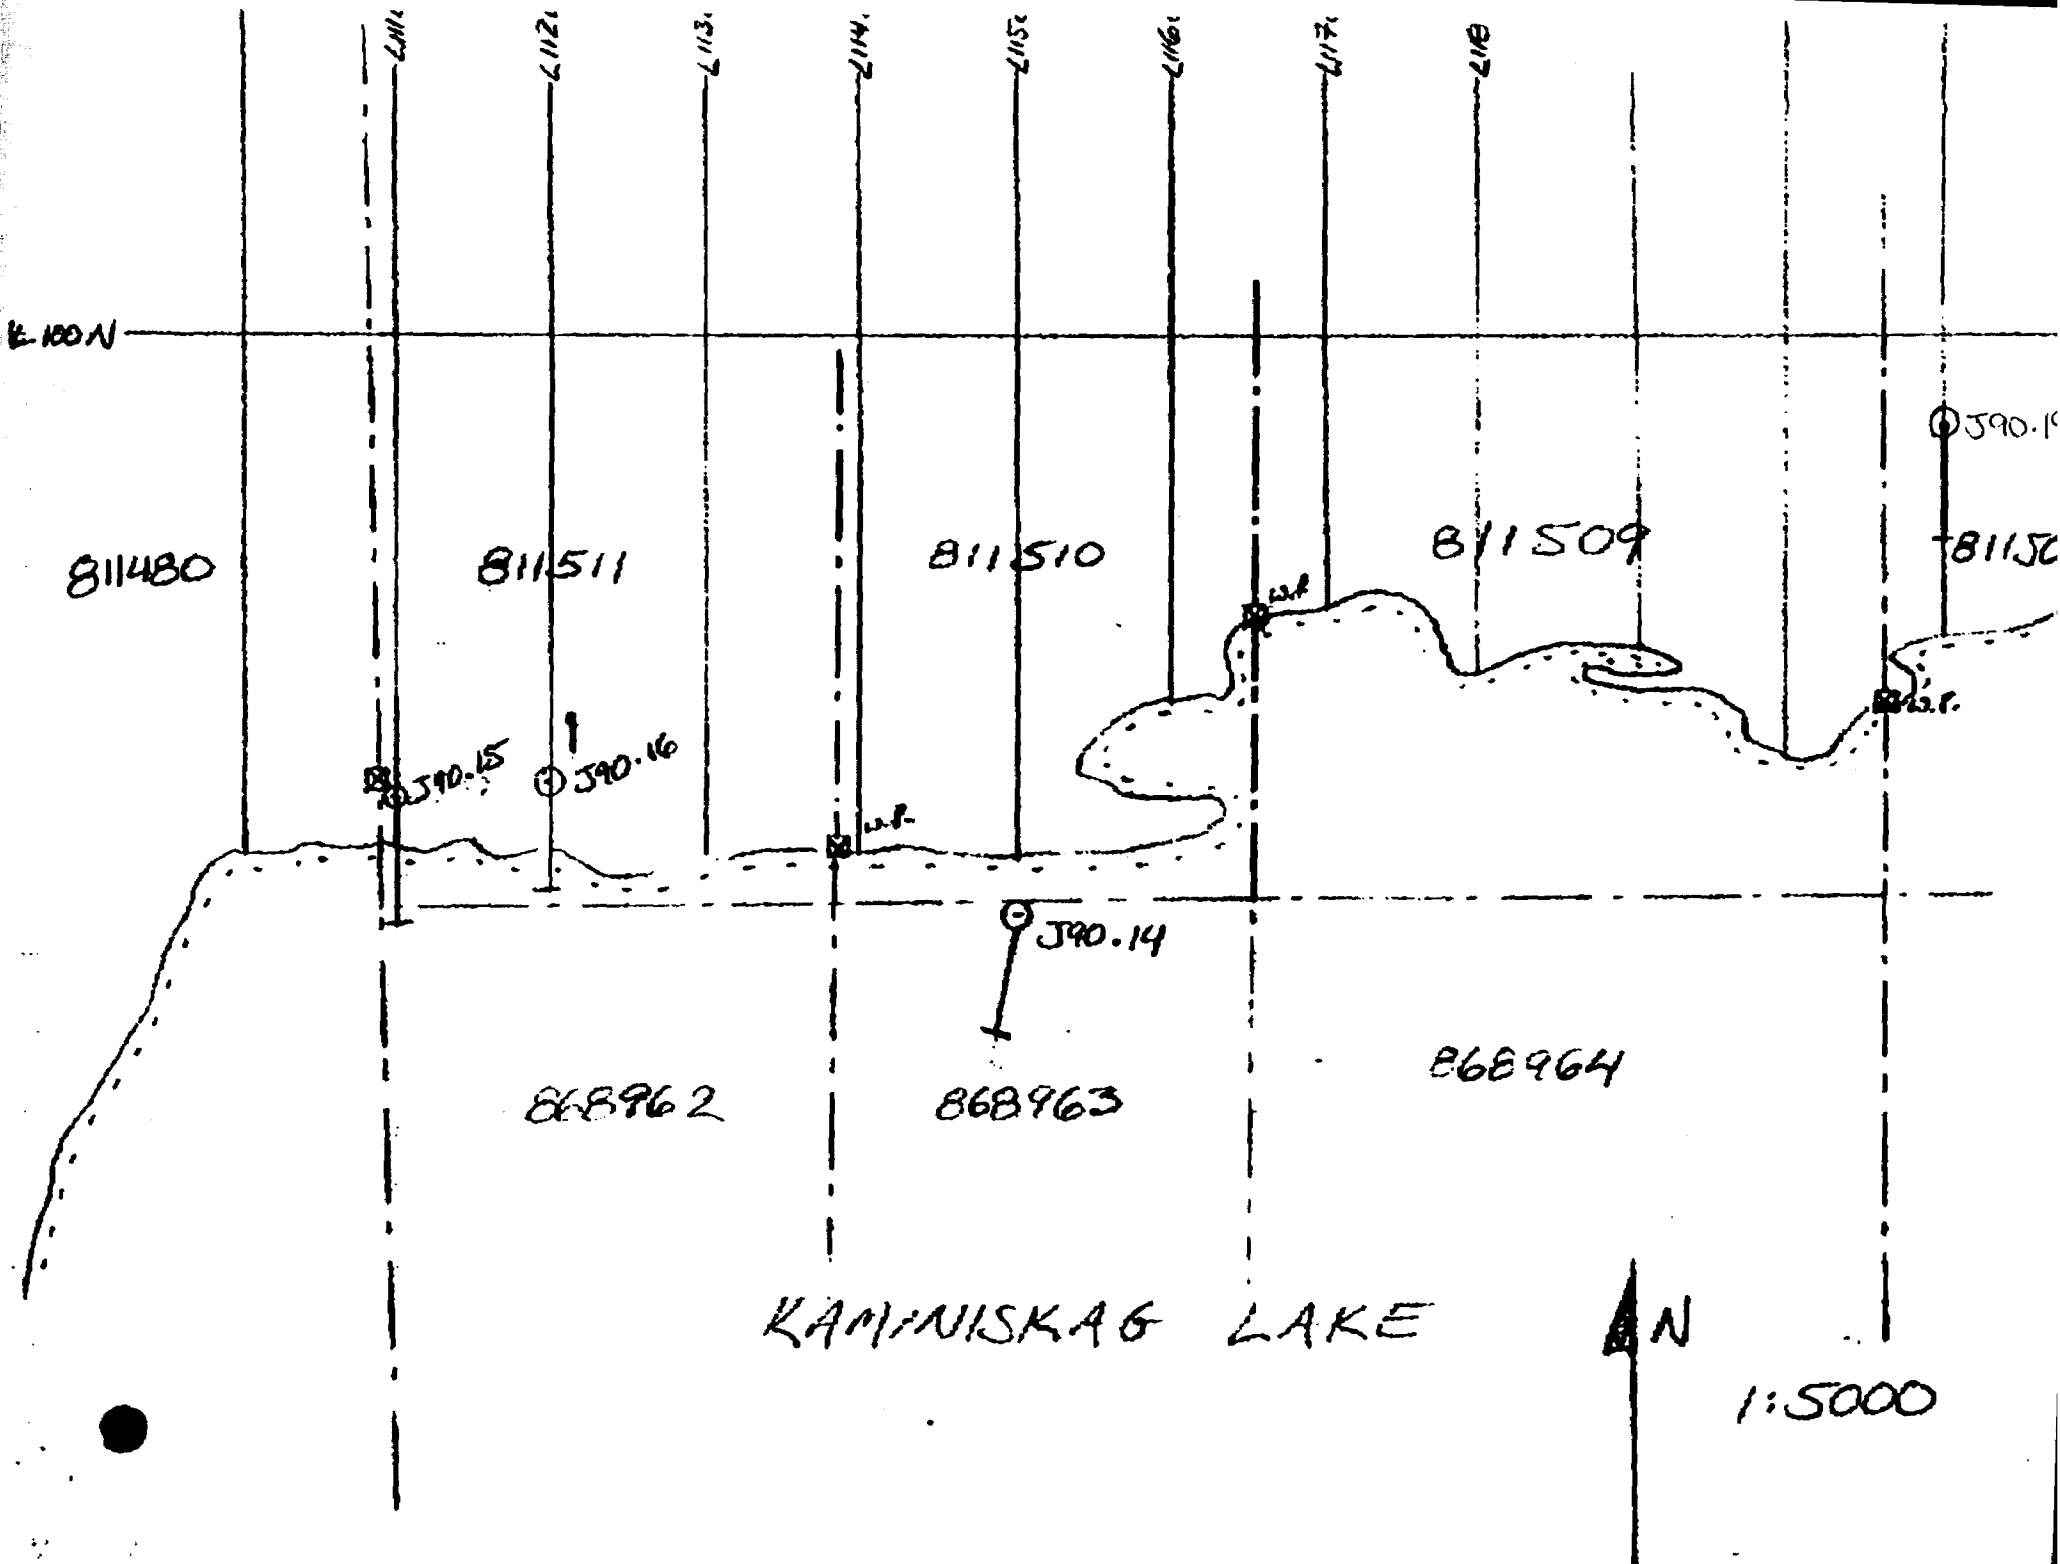 L111. L112. L113. L114. L115. L116. L117. L118
100N
J90.19
811480 811511 811510 811509 81150
W.P.
W.P.
J90.15 J90.16
W.P.
J90.14
868962 868963 868964
KAMINISKAG LAKE
N
1:5000